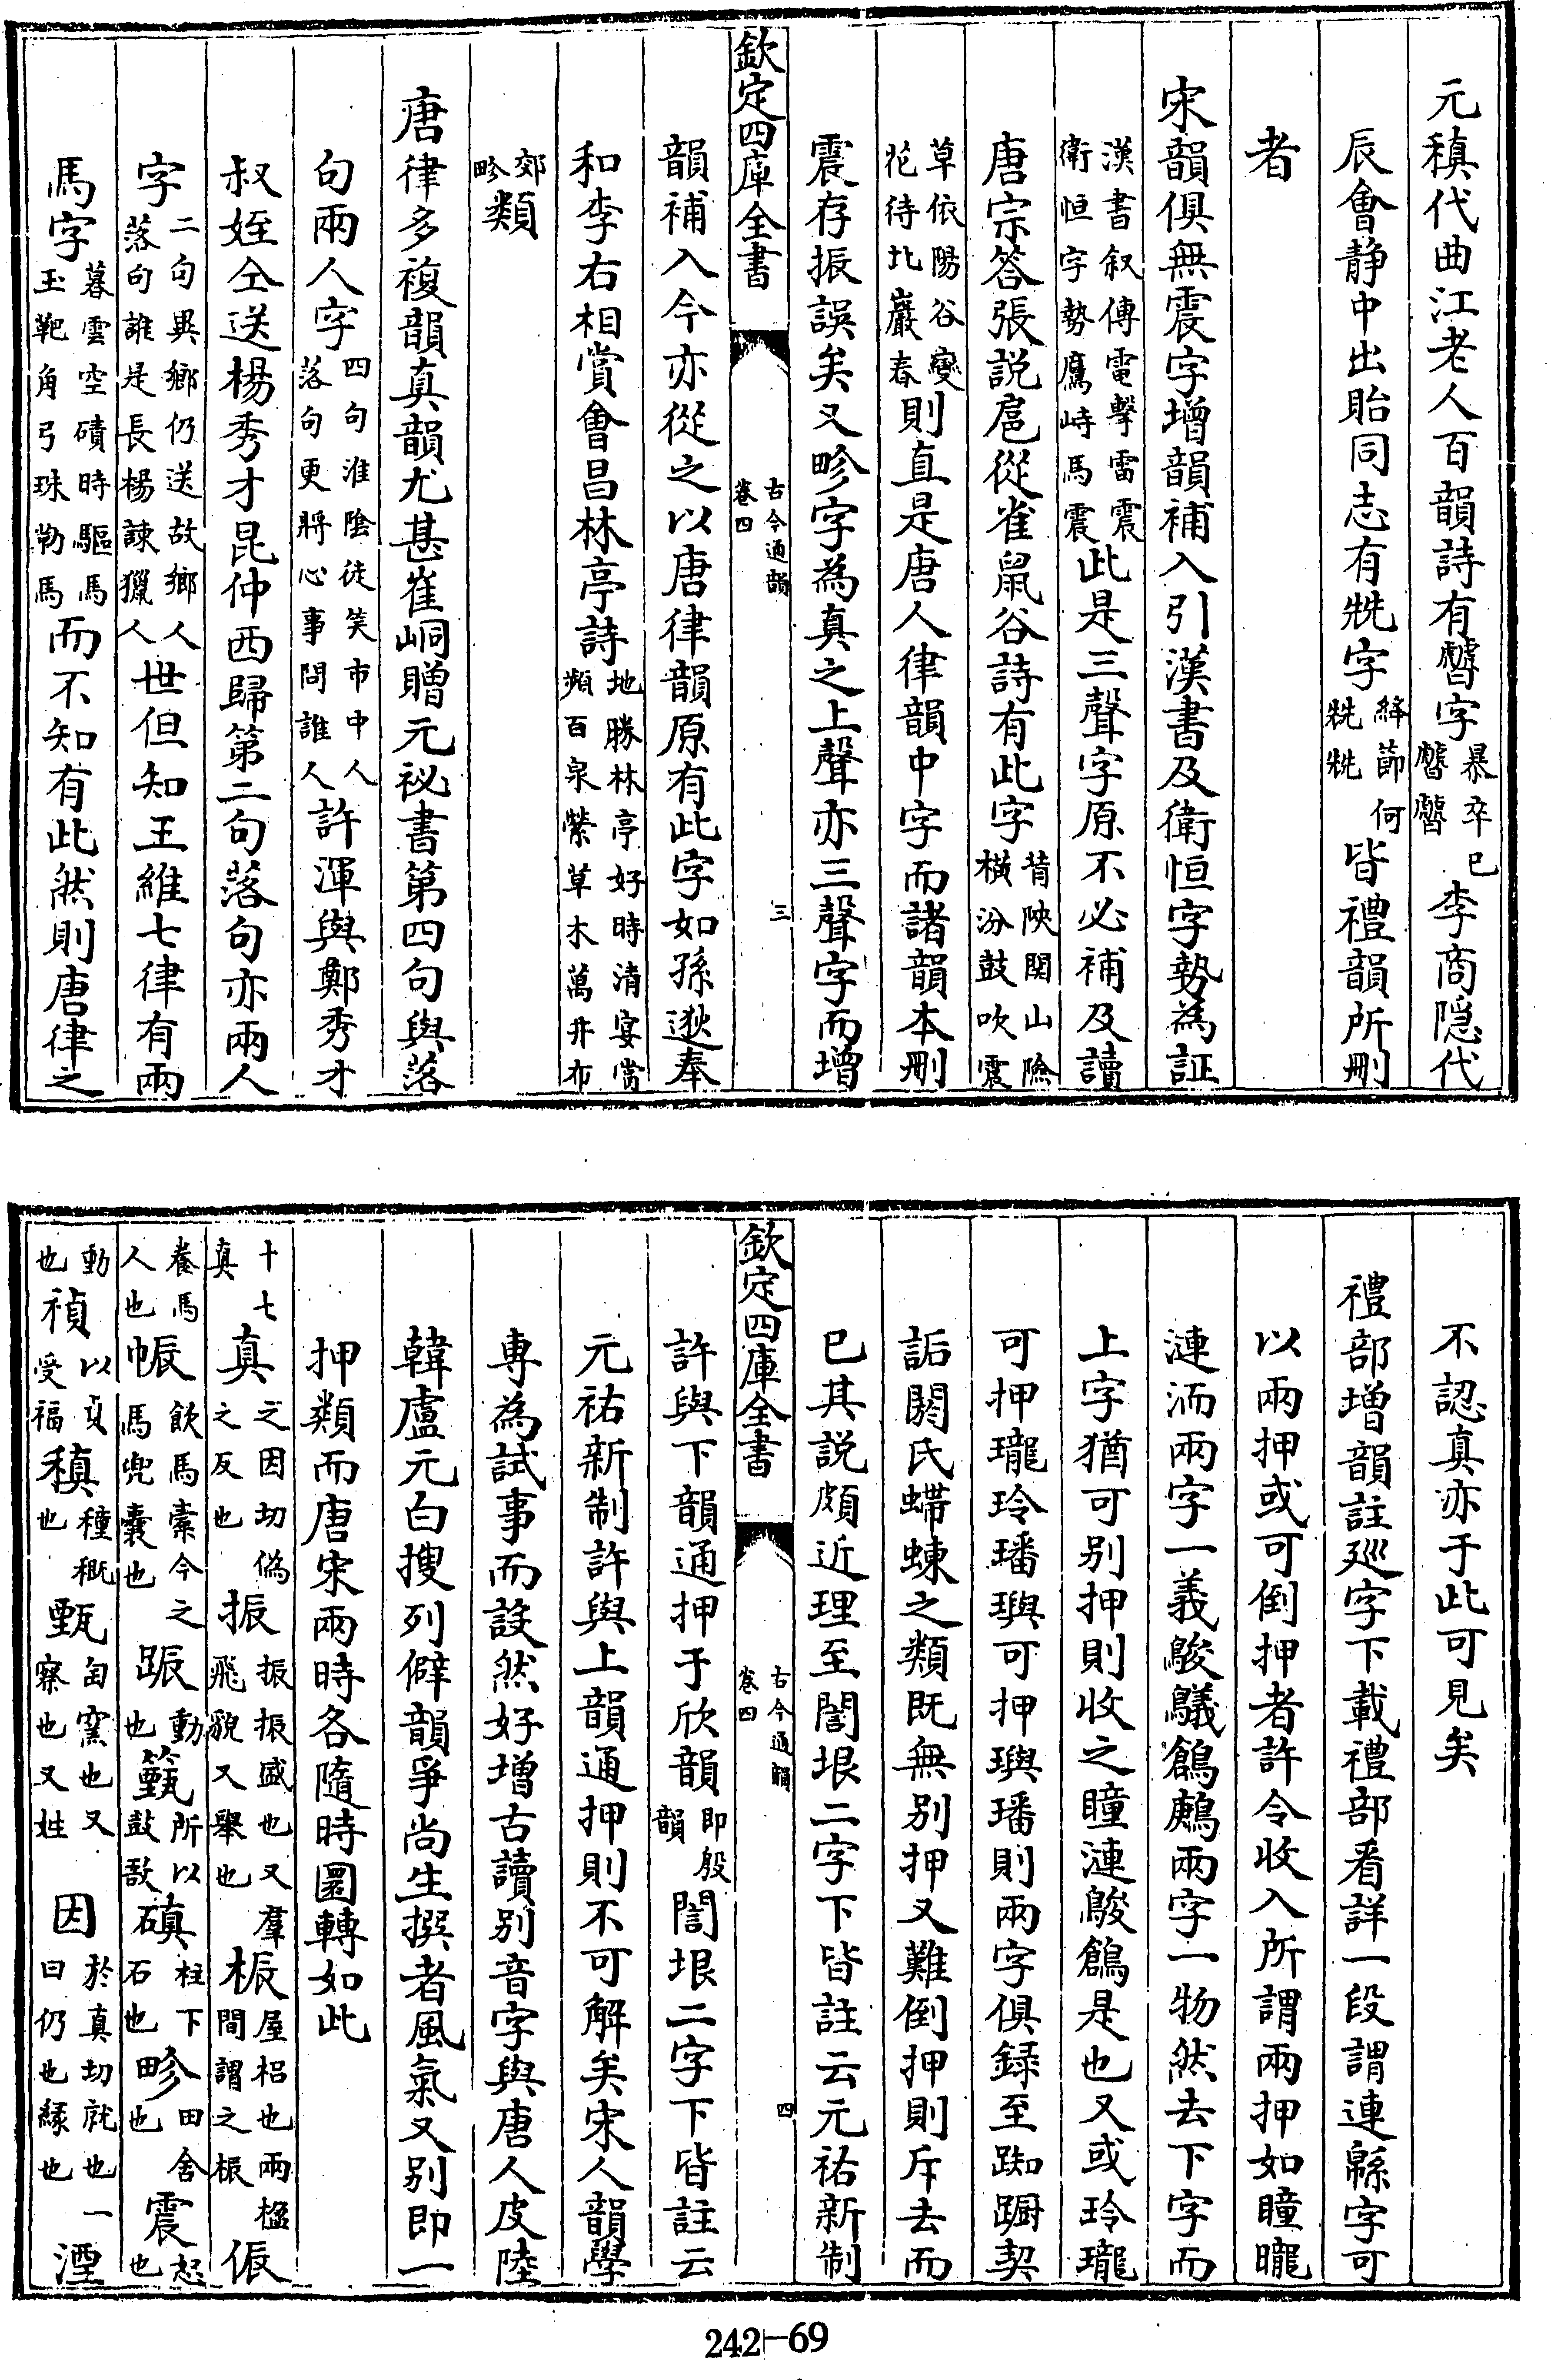 元稹代曲江老人百韻詩有朁字暴卒已朁朁李商隠代
辰㑹静中出貽同志有兟字絳節何兟兟皆禮韻所刪
者
宋韻俱無震字增韻補入引漢書及衛恒字勢為証
漢書叙傳電擊雷震衛恒字勢鷹峙馬震此是三聲字原不必補及讀
唐宗答張説扈從雀鼠谷詩有此字昔陜關山險横汾鼓吹震
草依陽谷變花待北巖春則直是唐人律韻中字而諸韻本刪
震存振誤矣又畛字為真之上聲亦三聲字而增
欽定四庫全書
古今通韻卷四
三
韻補入今亦從之以唐律韻原有此字如孫逖奉
和李右相賞㑹昌林亭詩地勝林亭好時清宴賞頻百泉縈草木萬井布
郊畛類
唐律多複韻真韻尤甚崔峒贈元祕書第四句與落
句兩人字四句淮隂徒笑市中人落句更將心事問誰人許渾與鄭秀才
叔姪仝送楊秀才昆仲西歸第二句落句亦兩人
字二句異鄉仍送故鄉人落句誰是長楊諫獵人世但知王維七律有兩
馬字暮雲空磧時驅馬玉靶角弓珠勒馬而不知有此然則唐律之
不認真亦于此可見矣
禮部增韻註巡字下載禮部看詳一段謂連緜字可
以兩押或可倒押者許令收入所謂兩押如瞳曨
漣洏兩字一義鵔鸃鶬鶊兩字一物然去下字而
上字猶可别押則收之瞳漣鵔鶬是也又或玲瓏
可押瓏玲璠璵可押璵璠則兩字俱録至踟蹰契
詬閼氏螮蝀之類既無别押又難倒押則斥去而
已其説頗近理至誾垠二字下皆註云元祐新制
欽定四庫全書
古今通韻卷四
四
許與下韻通押于欣韻即殷韻誾垠二字下皆註云
元祐新制許與上韻通押則不可解矣宋人韻學
專為試事而設然好增古讀别音字與唐人皮陸
韓盧元白搜列僻韻爭尚生撰者風氣又别即一
押類而唐宋兩時各隨時圜轉如此
十七真真之因切偽之反也振振振盛也又羣飛貌又舉也桭屋梠也兩楹間謂之桭侲
養馬人也帪飲馬槖今之馬兜囊也踬動也籈所以鼓敔磌柱下石也畛田舍也震起也
動也禎以貞受福稹種穊也甄匋窯也又察也又姓因於真切就也一曰仍也緣也湮
242-69